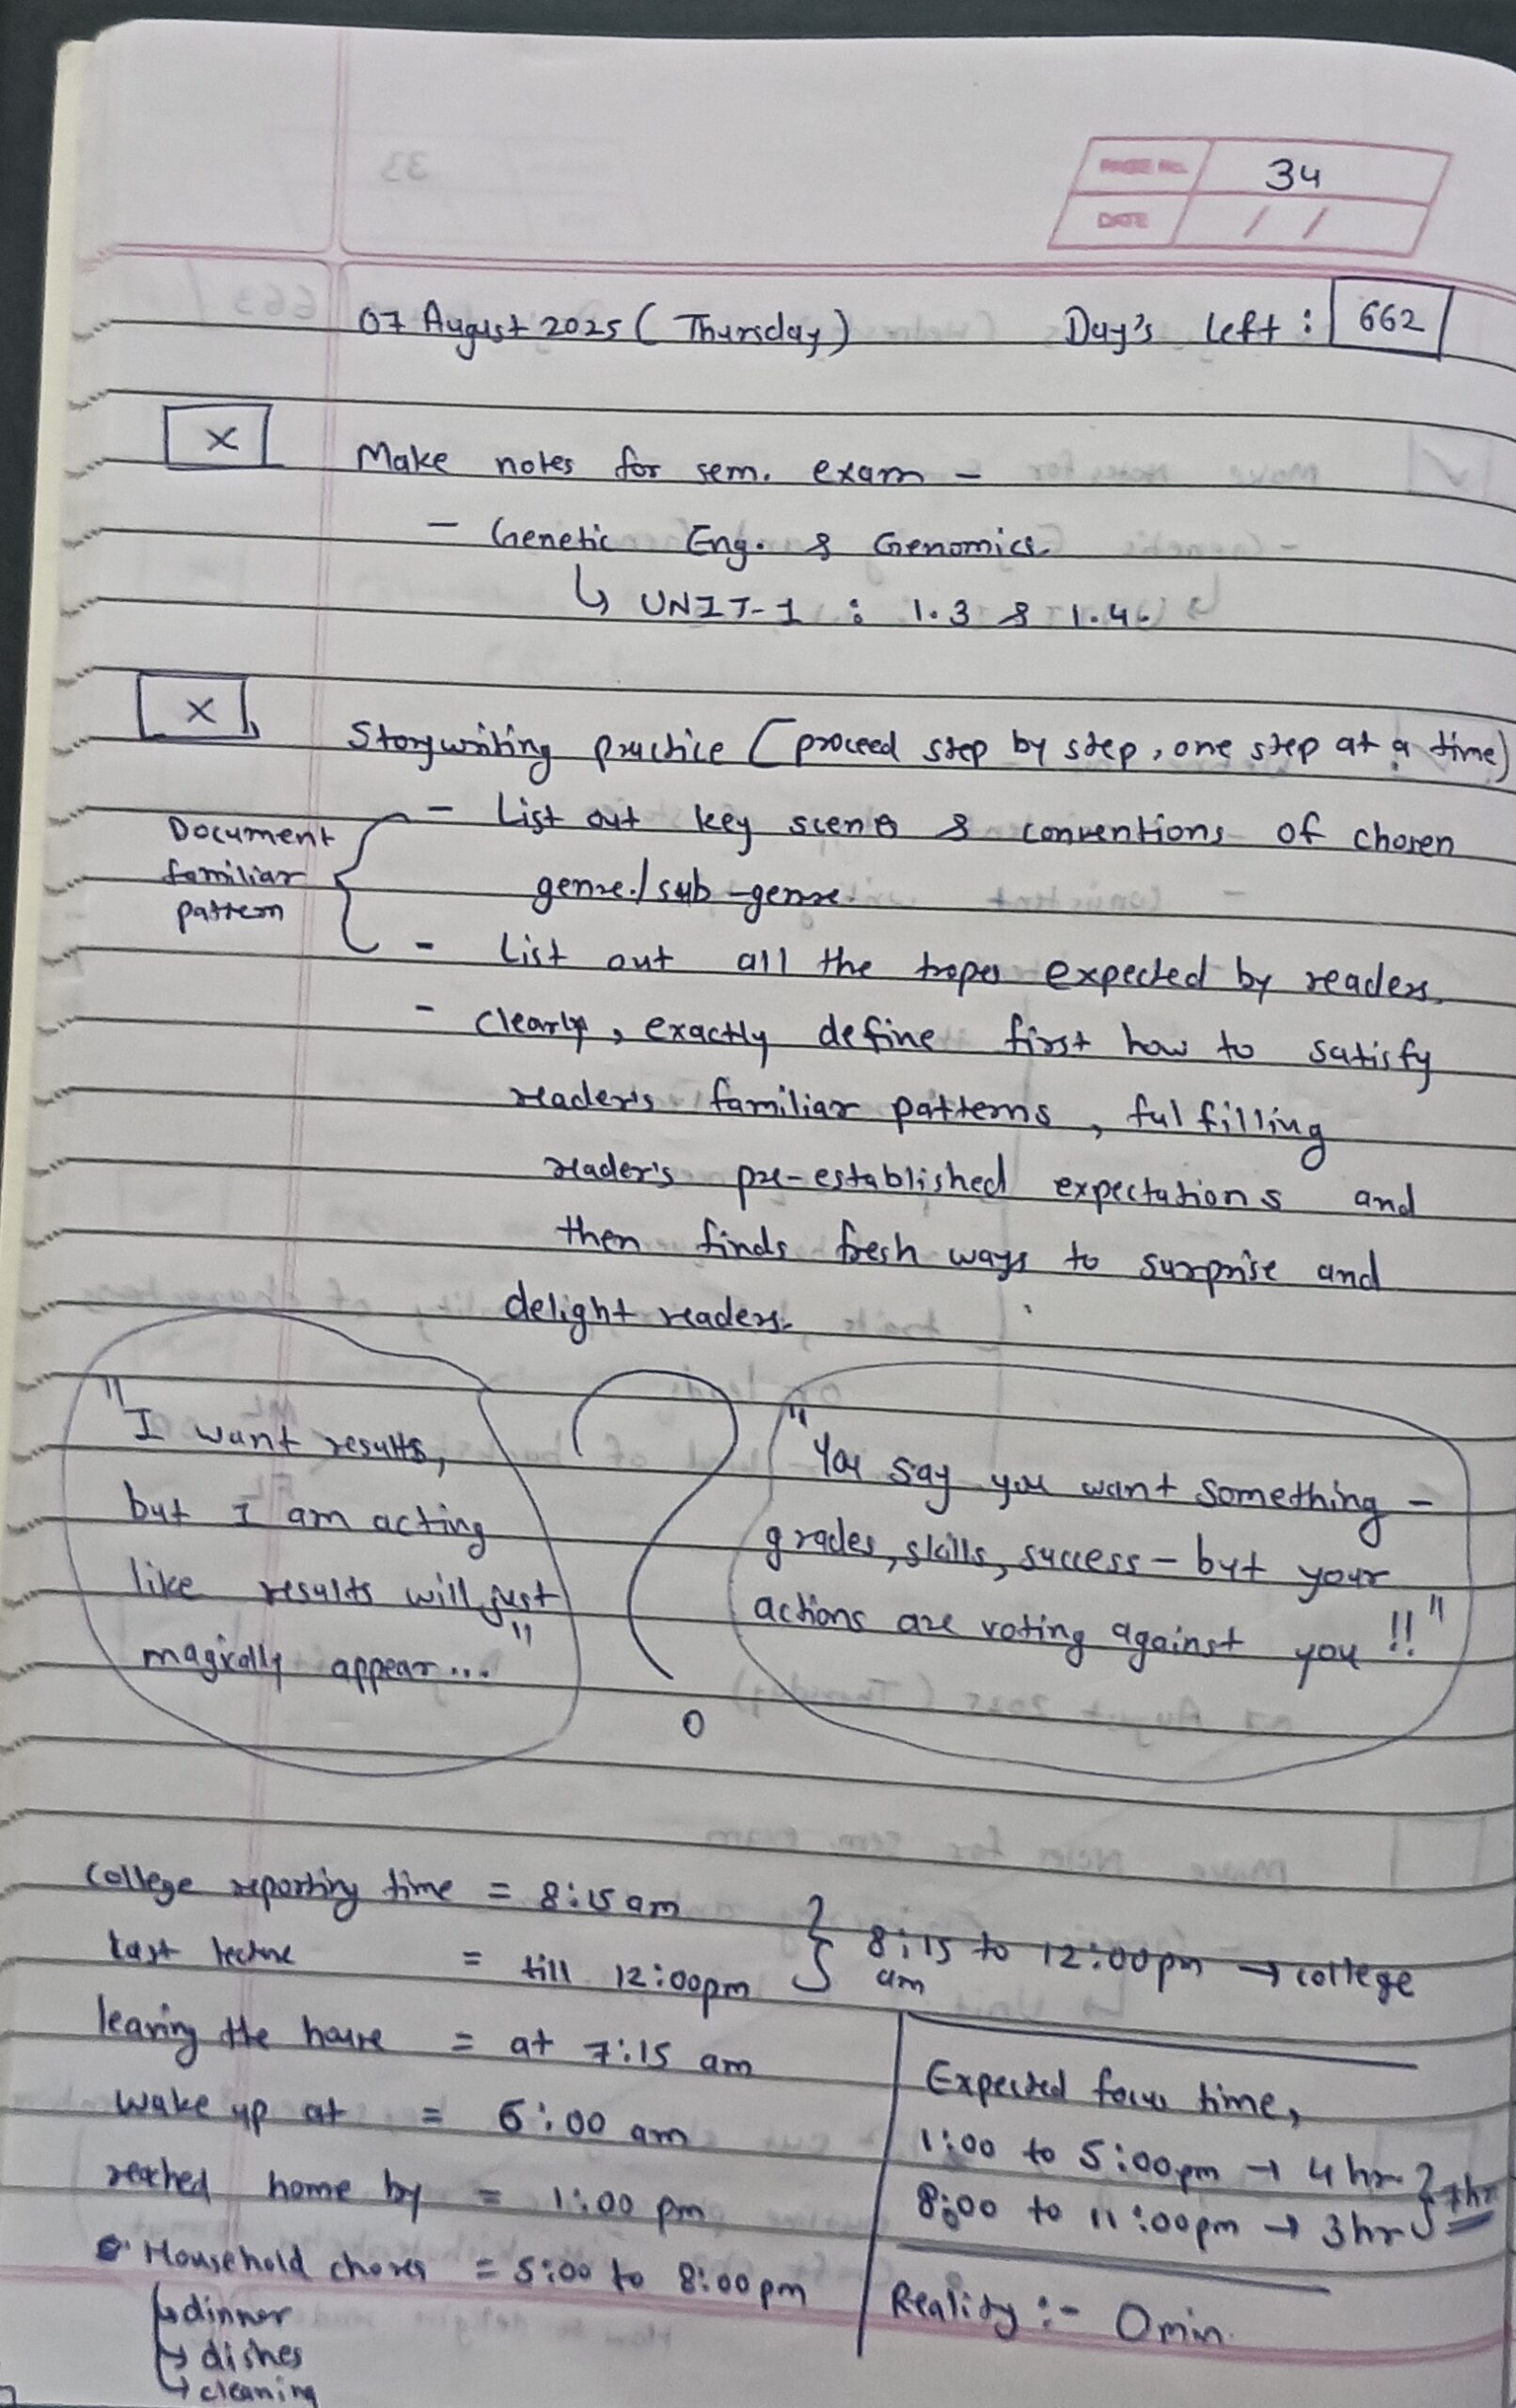 PAGE NO. 34
DATE / /
07 August 2025 ( Thursday ) Day's left : 662
x Make notes for sem. exam -
- Genetic Eng. & Genomics.
↳ UNIT-1 : 1.3 & 1.4.
x Storywriting practice ( proceed step by step, one step at a time)
- List out key scenes & conventions of chosen
genre./sub-genre.
Document
familiar
pattern
- List out all the tropes expected by readers.
- clearly, exactly define first how to satisfy
reader's familiar patterns, fulfilling
reader's pre-established expectations and
then finds fresh ways to surprise and
delight readers.
"I want results,
but I am acting
like results will just
magically appear..."
?
"You say you want something -
grades, skills, success - but your
actions are voting against you !!"
College reporting time = 8:15 am
Last lecture = till 12:00pm } 8:15 am to 12:00pm → college
leaving the house = at 7:15 am
wake up at = 6:00 am
reached home by = 1:00 pm
Household chores = 5:00 to 8:00pm
↳ dinner
↳ dishes
↳ cleaning
Expected focus time,
1:00 to 5:00pm → 4 hr
8:00 to 11:00pm → 3 hr } 7hr
Reality :- 0 min.